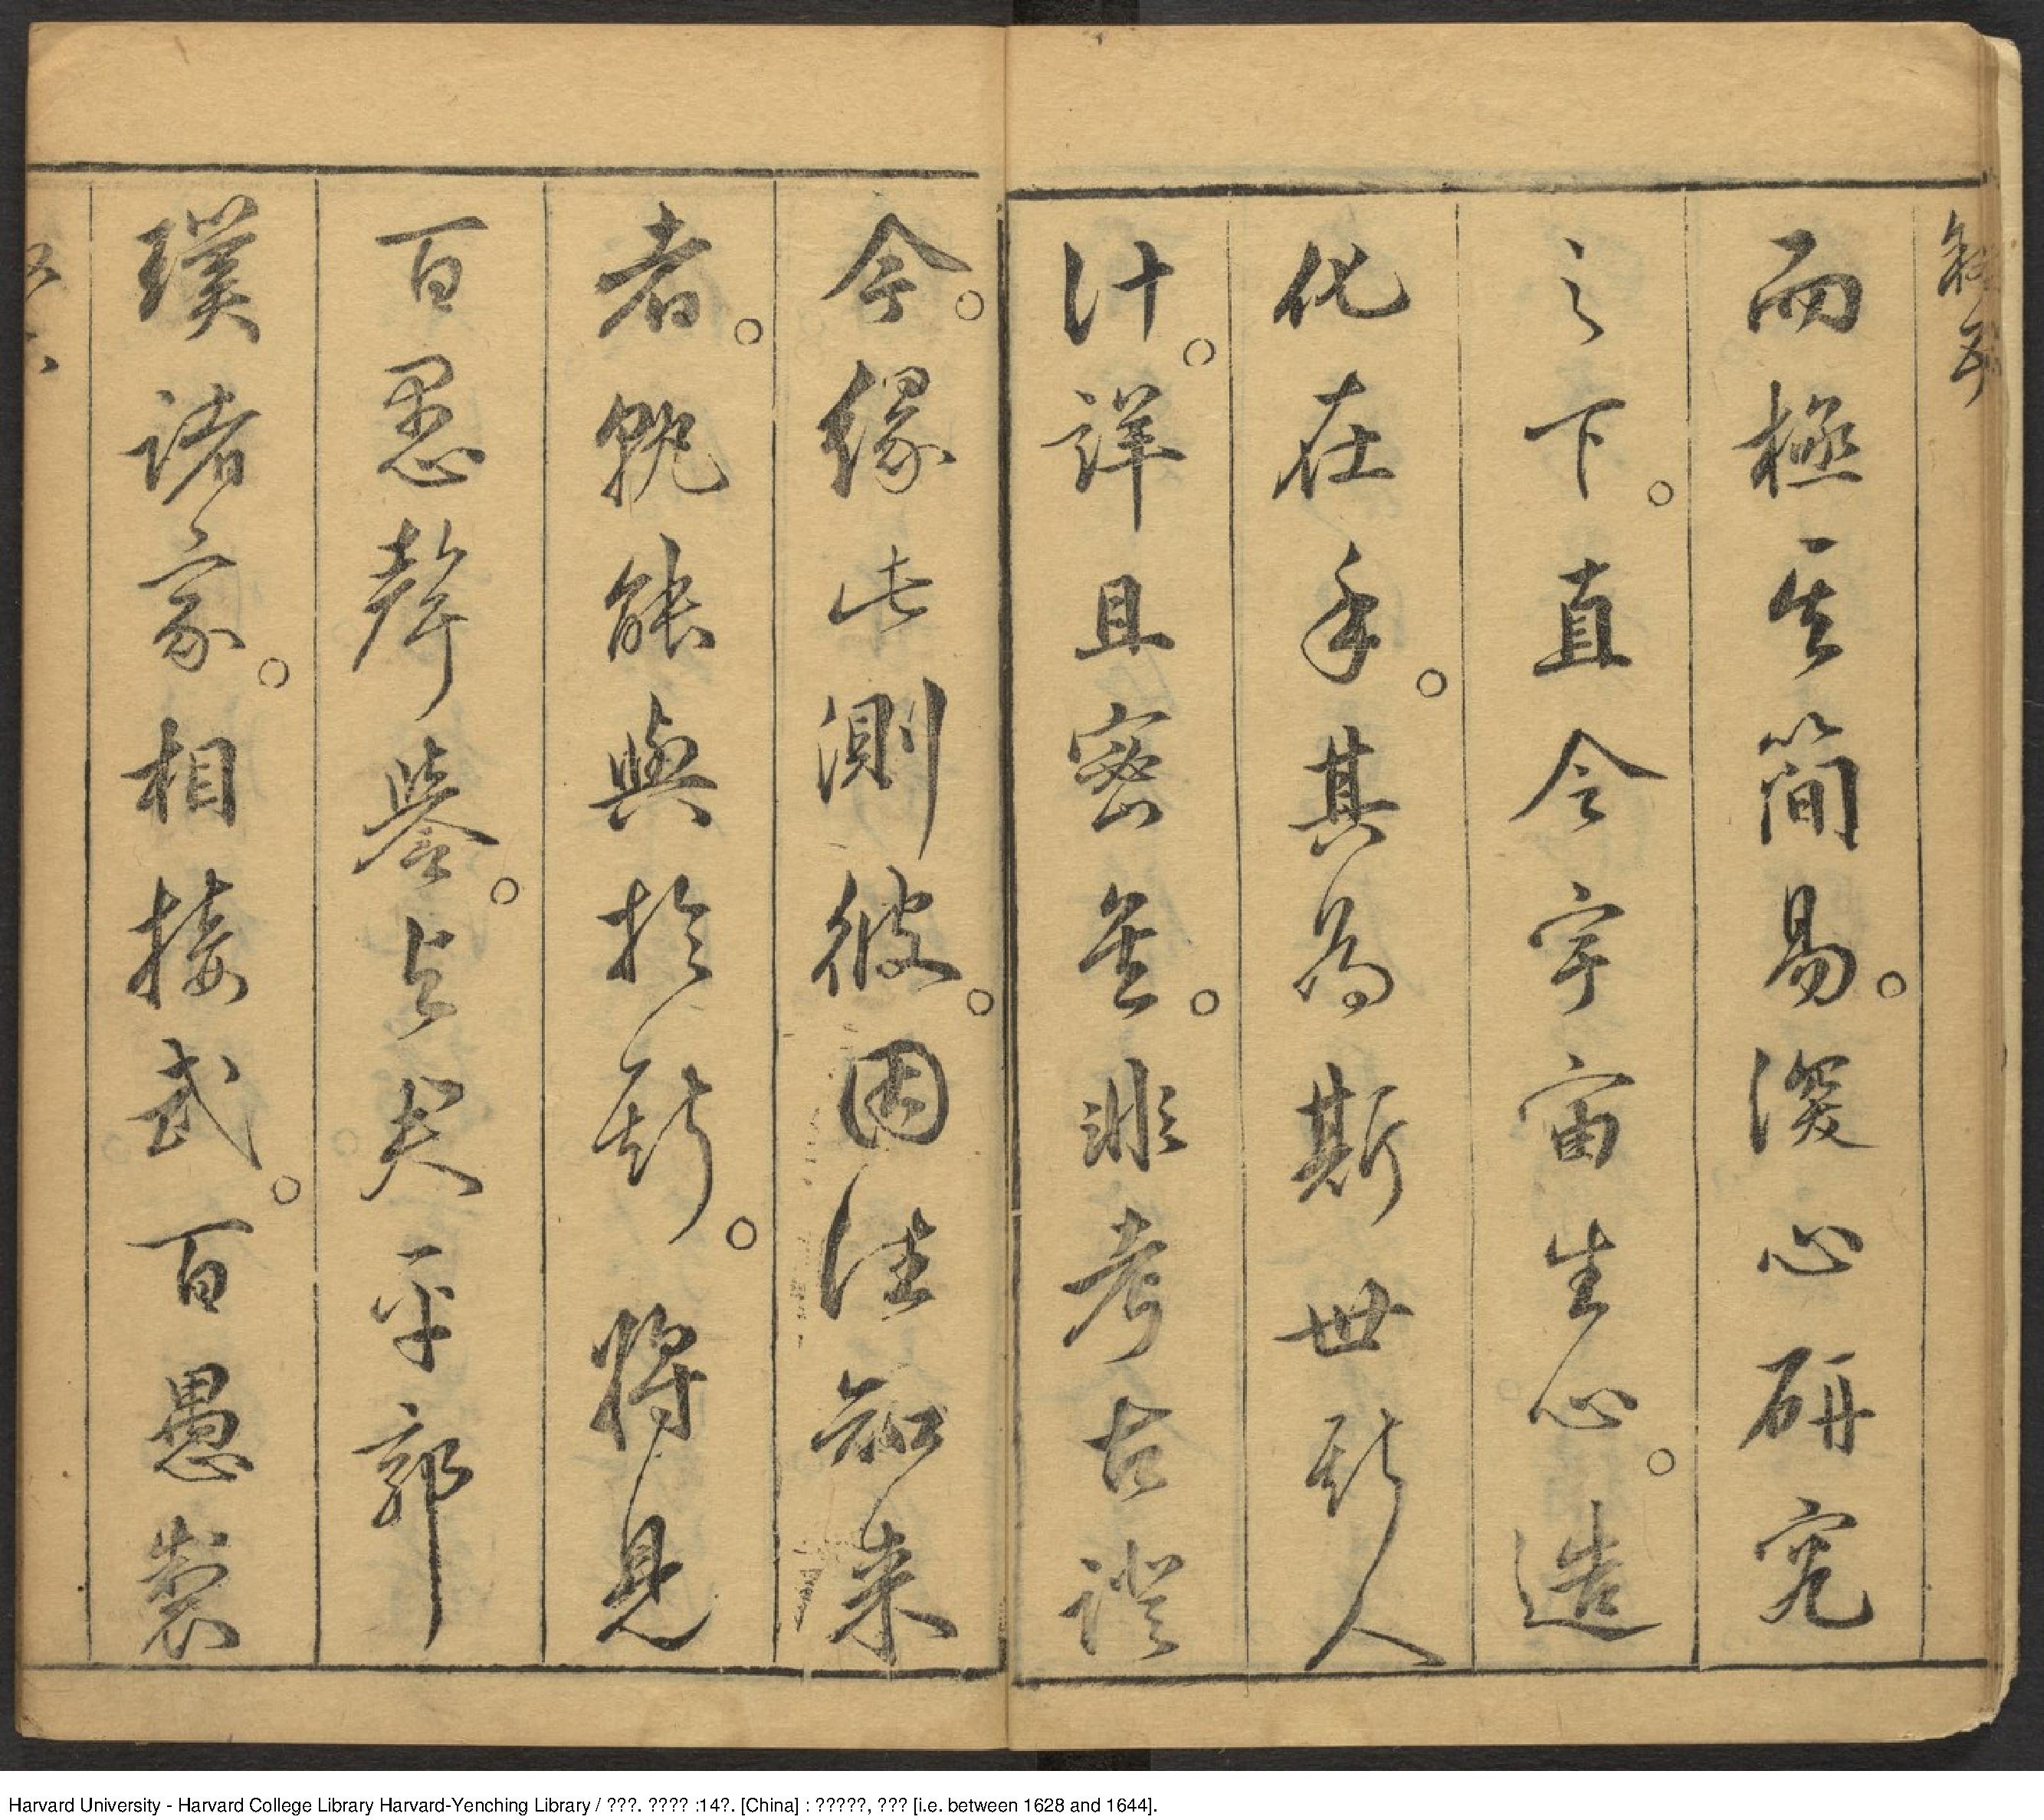 叙五
而極其簡易。深心研究
之下。直令宇宙生心。造
化在手。其為斯世斯人
計。詳且密矣。非考古證
今。緣此測彼。因往知来
者。孰能與於斯。將見
百愚聲譽。与平郭
璞諸家。相接武。百愚製
Harvard University - Harvard College Library Harvard-Yenching Library / ???. ???? :14?. [China] : ?????, ??? [i.e. between 1628 and 1644].